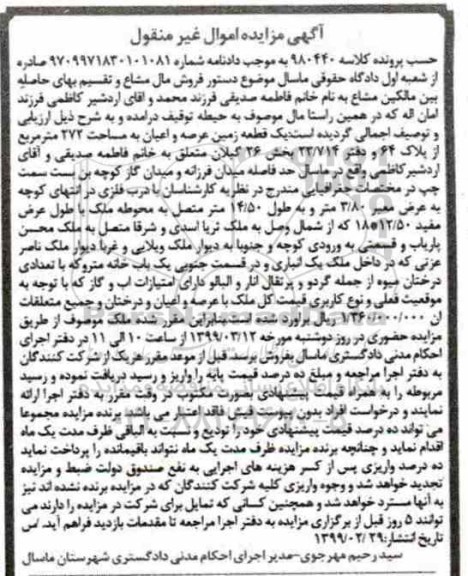 آگهی مزایده اموال غیر منقول
حسب پرونده کلاسه ۹۸۰۴۴۰ به موجب دادنامه شماره ۹۷۰۹۹۷۱۸۳۰۱۰۱۰۸۱ صادره
از شعبه اول دادگاه حقوقی ماسال موضوع دستور فروش مال مشاع و تقسیم بهای حاصله
بین مالکین مشاع به نام خانم فاطمه صدیقی فرزند محمد و اقای اردشیر کاظمی فرزند
امان اله که در همین راستا مال موصوف به حیطه توقیف درامده و به شرح ذیل ارزیابی
و توصیف اجمالی گردیده است:یک قطعه زمین عرصه و اعیان به مساحت ۲۷۲ مترمربع
از پلاک ۶۴ و دفتر ۲۳/۷۱۴ بخش ۲۶ گیلان متعلق به خانم فاطمه صدیقی و آقای
اردشیر کاظمی واقع در ماسال حد فاصله میدان فرزانه و میدان گاز کوچه بن بست سمت
چپ در مختصات جغرافیایی مندرج در نظریه کارشناسان با درب فلزی در انتهای کوچه
به عرض مسیر ۳/۸۰ متر و به طول ۱۴/۵۰ متر متصل به محوطه ملک با طول عرض
مفید ۱۲/۵۰*۱۸ که از شمال وصل به ملک ثریا اسدی و شرقا متصل به ملک محسن
پاریاب و قسمتی به ورودی کوچه و جنوبا به دیوار ملک ویلایی و غربا دیوار ملک ناصر
عزتی که در داخل ملک یک انباری و در قسمت جنوبی یک باب خانه متروکه با تعدادی
درختان میوه از جمله گردو و پرتقال انار و البالو دارای امتیازات اب و گاز که با توجه به
موقعیت فعلی و نوع کاربری قیمت کل ملک با عرصه و اعیان و درختان و جمیع متعلقات
ان ۱/۳۶۰/۰۰۰/۰۰۰ ریال برآورد شده است.بنابراین مقرر شد ملک موصوف از طریق
مزایده حضوری در روز دوشنبه مورخه ۱۳۹۹/۰۳/۱۲ از ساعت ۱۰ الی ۱۱ در دفتر اجرای
احکام مدنی دادگستری ماسال بفروش برسد قبل از موعد مقرر هریک از شرکت کنندگان
به دفتر اجرا مراجعه و مبلغ ده درصد قیمت پایه را واریز و رسید دریافت نموده و رسید
مربوطه را به همراه قیمت پیشنهادی بصورت مکتوب در وقت مقرر به دفتر اجرا ارائه
نمایند و درخواست افراد بدون پیوست فیش فاقد اعتبار می باشد. برنده مزایده مجموعا
می تواند ده درصد قیمت پیشنهادی خود را تودیع و نسبت به الباقی ظرف مدت یک ماه
اقدام نماید و چنانچه برنده مزایده ظرف مدت یک ماه نتواند باقیمانده را پرداخت نماید
ده درصد واریزی پس از کسر هزینه های اجرایی به نفع صندوق دولت ضبط و مزایده
تجدید خواهد شد و وجوه واریزی کلیه شرکت کنندگان که در مزایده برنده نشده اند نیز
به آنها مسترد خواهد شد و همچنین کسانی که تمایل برای شرکت در مزایده را دارند می
توانند ۵ روز قبل از برگزاری مزایده به دفتر اجرا مراجعه تا مقدمات بازدید فراهم آید. /س
تاریخ انتشار: ۱۳۹۹/۰۲/۲۹
سید رحیم مهرجوی-مدیر اجرای احکام مدنی دادگستری شهرستان ماسال